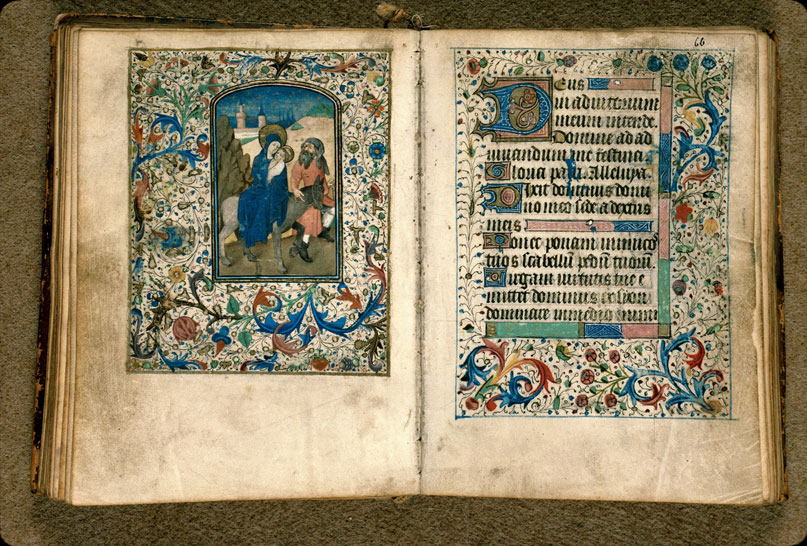 66
Deus
in adiutorium
meum intende.
Domine ad ad
iuuandum me festina.
Gloria patri. Alleluya.
Dixit dominus domi
no meo sede a dextris
meis
Donec ponam inimico
tuos scabellum pedum tuorum.
Virgam virtutis tue e
mittet dominus ex syon
dominare in medio inimi